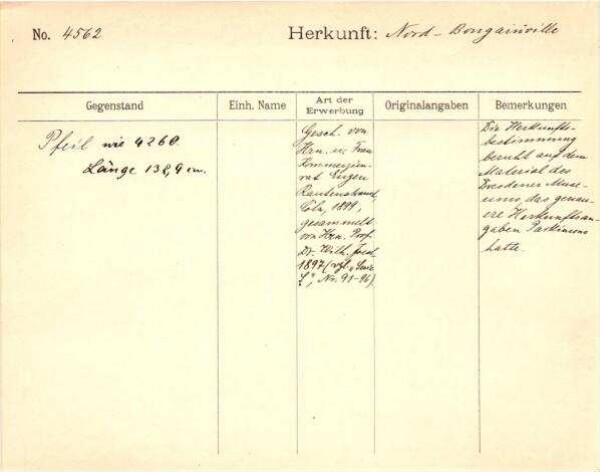 No. 4562
Herkunft: Nord-Bougainville
Gegenstand
Einh. Name
Art der
Erwerbung
Originalangaben
Bemerkungen
Pfeil wie 4260.
Länge 138,9 cm.
Gesch. von
Hrn. u. Frau
Kommerzien-
rat Eugen
Rautenstrauch,
Cöln, 1899,
gesammelt
von Hrn. Prof.
Dr. Wilh. Joest
1897 (vgl.
Nr. 91-96).
Die Herkunfts-
bestimmung
beruht auf dem
Material des
Dresdener Muse-
ums das genau-
ere Herkunftsan-
gaben Parkinsons
hatte.